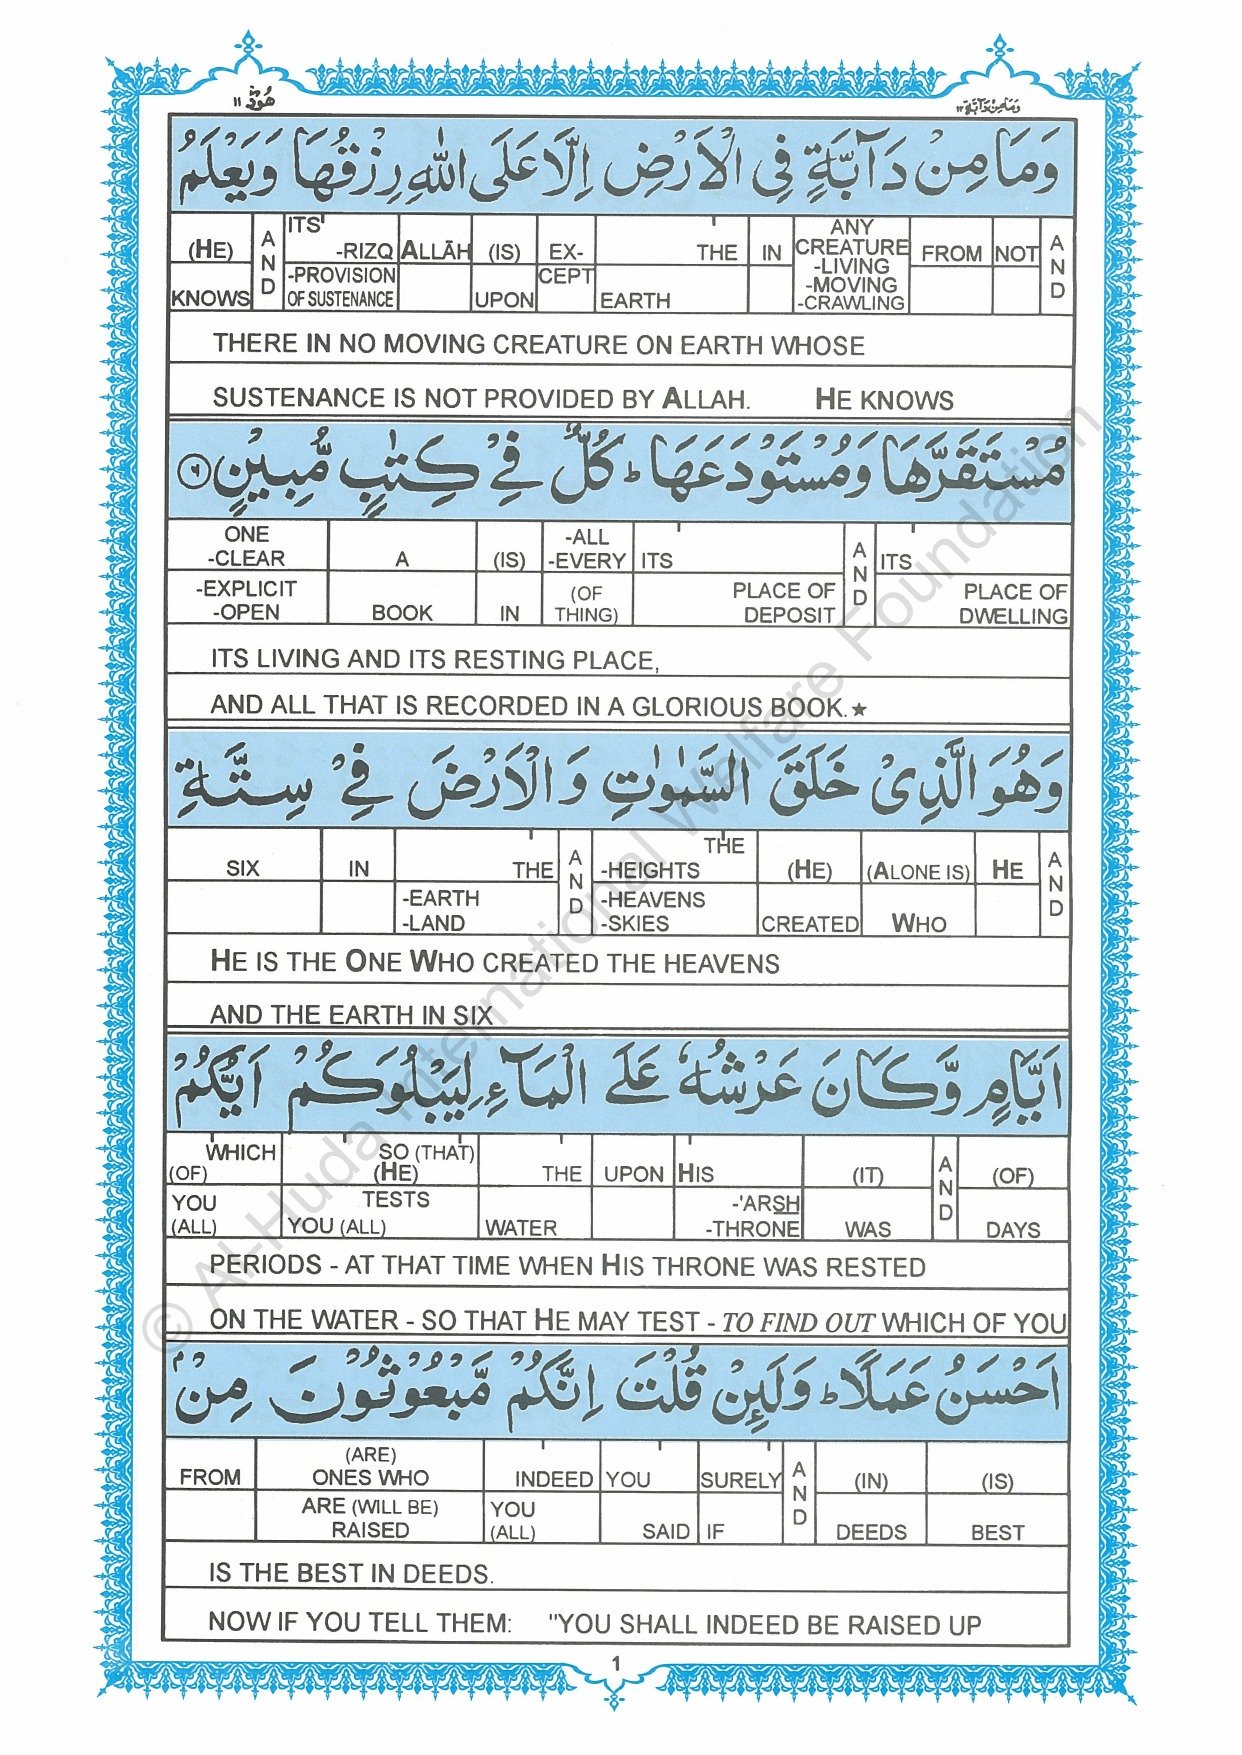 وَمَا مِنْ دَآبَّةٍ ١٢
هُوْد ١١
وَمَا مِنْ دَآبَّةٍ فِي الْاَرْضِ اِلَّا عَلَى اللّٰهِ رِزْقُهَا وَيَعْلَمُ
AND
NOT
FROM
ANY CREATURE -LIVING -MOVING -CRAWLING
IN
THE EARTH
EXCEPT
(IS) UPON
ALLĀH
ITS -RIZQ -PROVISION OF SUSTENANCE
AND
(HE) KNOWS
THERE IN NO MOVING CREATURE ON EARTH WHOSE
SUSTENANCE IS NOT PROVIDED BY ALLAH. HE KNOWS
مُسْتَقَرَّهَا وَمُسْتَوْدَعَهَا ؕ كُلٌّ فِيْ كِتٰبٍ مُّبِيْنٍ ٦
ITS PLACE OF DWELLING
AND
ITS PLACE OF DEPOSIT
-ALL -EVERY (OF THING)
(IS) IN
A BOOK
ONE -CLEAR -EXPLICIT -OPEN
ITS LIVING AND ITS RESTING PLACE,
AND ALL THAT IS RECORDED IN A GLORIOUS BOOK.★
وَهُوَ الَّذِيْ خَلَقَ السَّمٰوٰتِ وَالْاَرْضَ فِيْ سِتَّةِ
AND
HE
(ALONE IS) WHO
(HE) CREATED
THE -HEIGHTS -HEAVENS -SKIES
AND
THE -EARTH -LAND
IN
SIX
HE IS THE ONE WHO CREATED THE HEAVENS
AND THE EARTH IN SIX
اَيَّامٍ وَّكَانَ عَرْشُهٗ عَلَى الْمَآءِ لِيَبْلُوَكُمْ اَيُّكُمْ
(OF) DAYS
AND
(IT) WAS
HIS -'ARSH -THRONE
UPON
THE WATER
SO (THAT) (HE) TESTS YOU (ALL)
WHICH (OF) YOU (ALL)
PERIODS - AT THAT TIME WHEN HIS THRONE WAS RESTED
ON THE WATER - SO THAT HE MAY TEST - TO FIND OUT WHICH OF YOU
اَحْسَنُ عَمَلًا ؕ وَلَئِنْ قُلْتَ اِنَّكُمْ مَّبْعُوْثُوْنَ مِنْۢ
(IS) BEST
(IN) DEEDS
AND
SURELY IF
YOU SAID
INDEED YOU (ALL)
(ARE) ONES WHO ARE (WILL BE) RAISED
FROM
IS THE BEST IN DEEDS.
NOW IF YOU TELL THEM: "YOU SHALL INDEED BE RAISED UP
1
© Al-Huda International Welfare Foundation